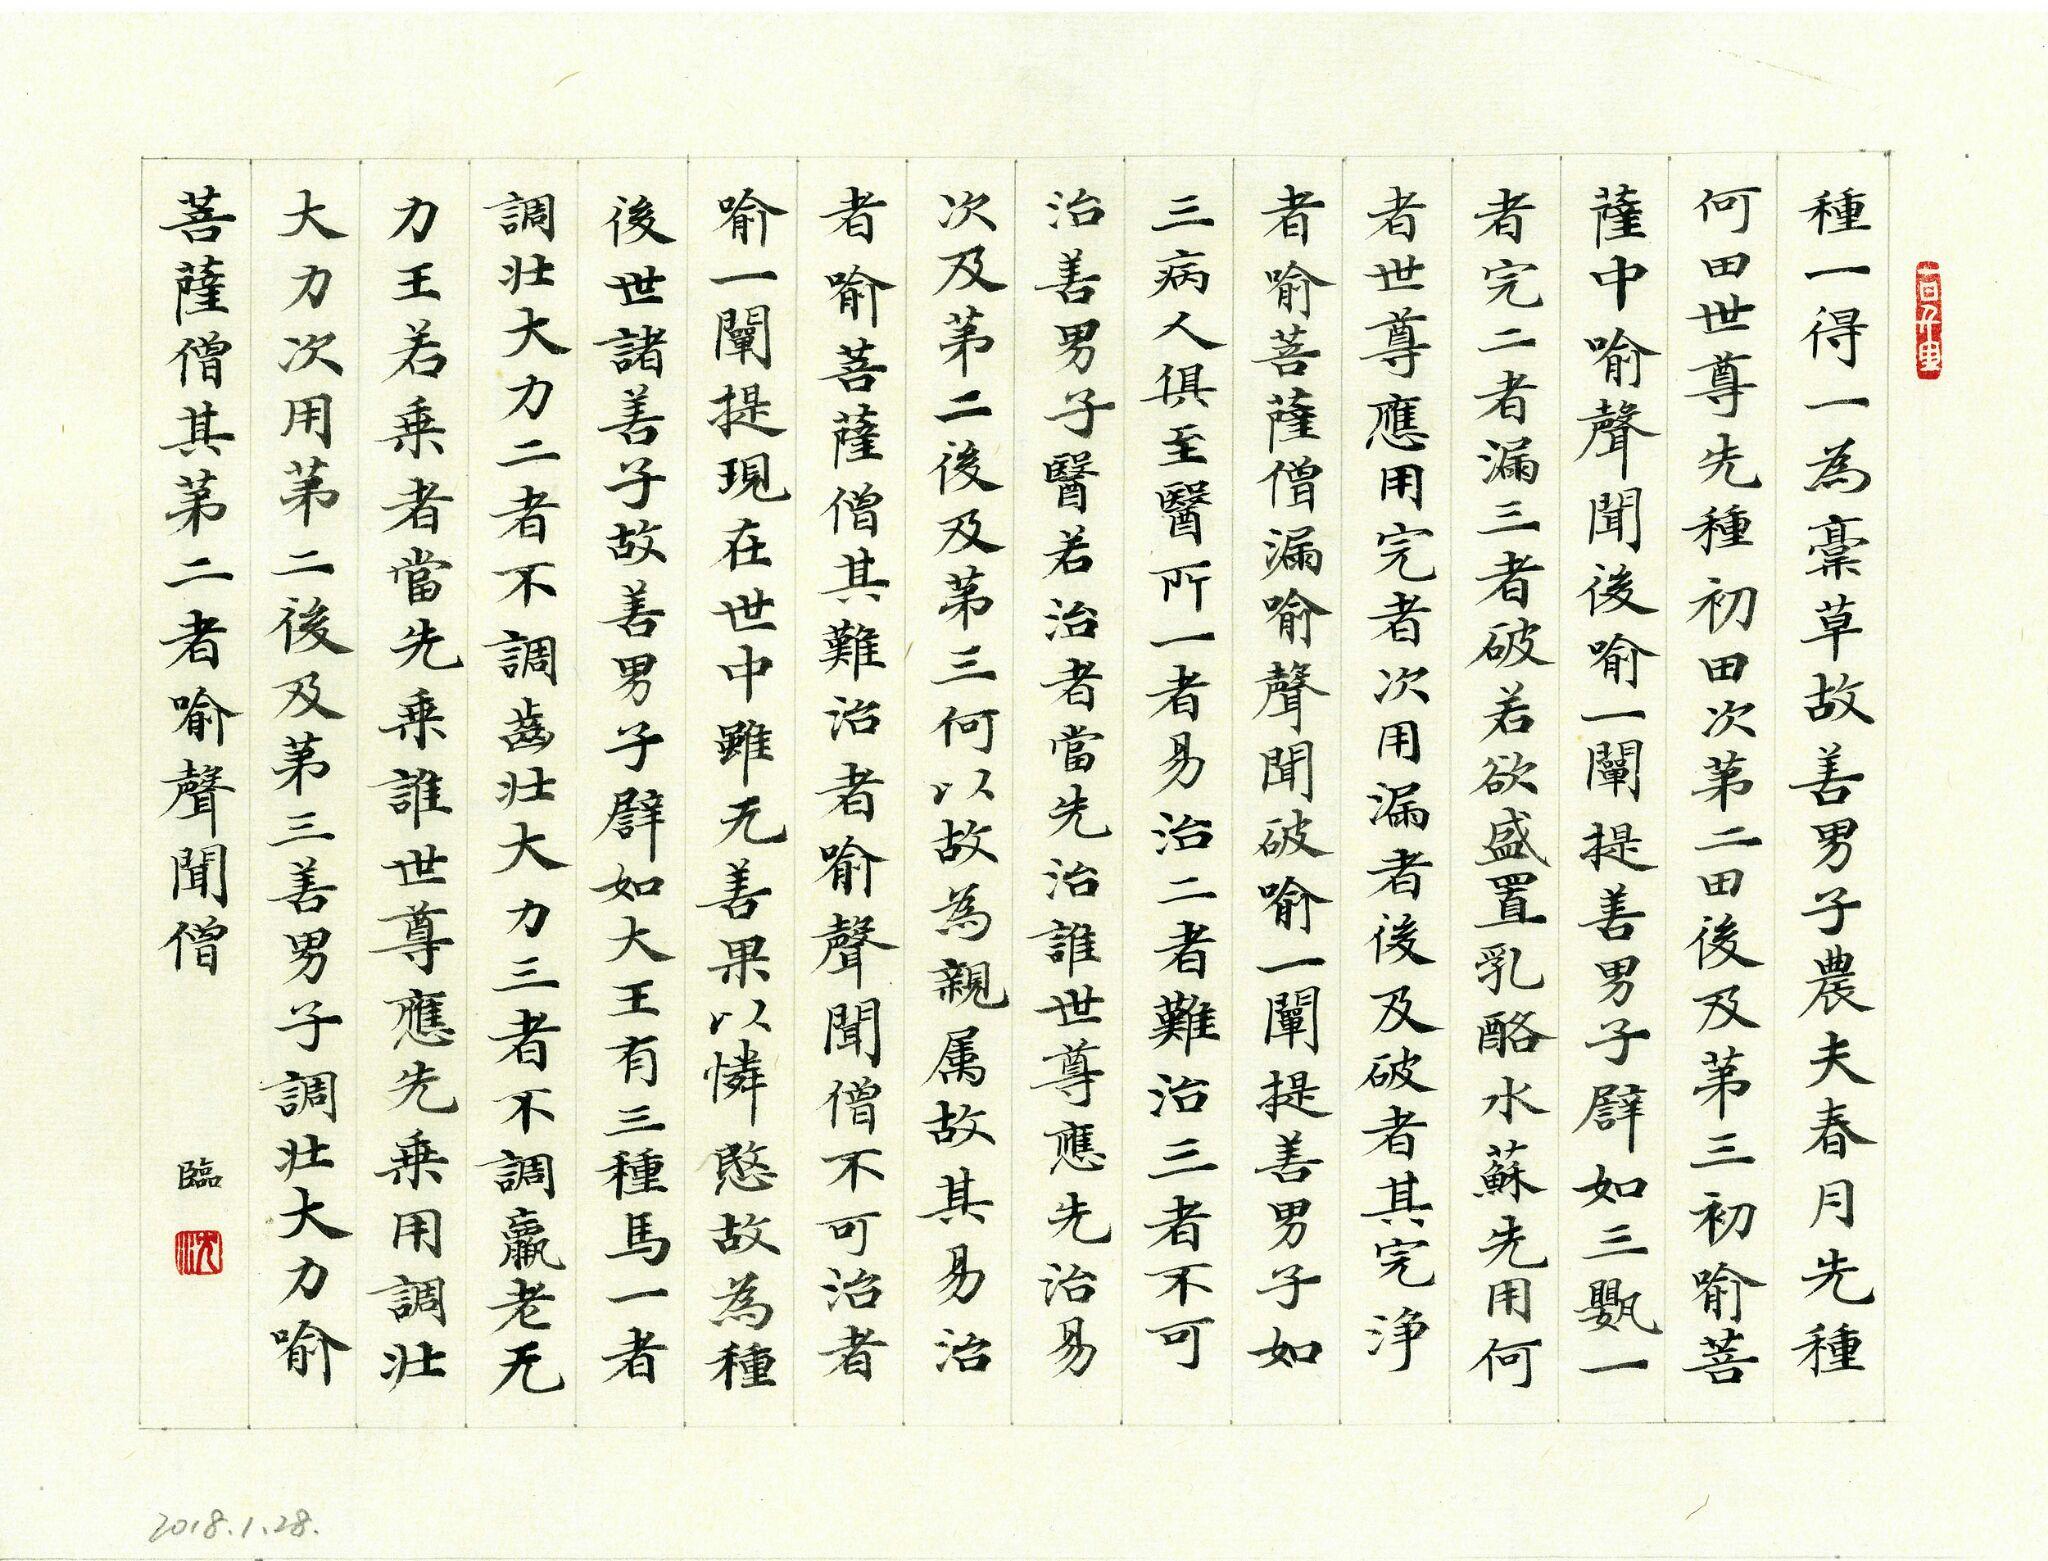 種一得一為稾草故善男子農夫春月先種
何田世尊先種初田次第二田後及第三初喻菩
薩中喻聲聞後喻一闡提善男子譬如三甖一
者完二者漏三者破若欲盛置乳酪水蘇先用何
者世尊應用完者次用漏者後及破者其完淨
者喻菩薩僧漏喻聲聞破喻一闡提善男子如
三病人俱至醫所一者易治二者難治三者不可
治善男子醫若治者當先治誰世尊應先治易
次及第二後及第三何以故為親属故其易治
者喻菩薩僧其難治者喻聲聞僧不可治者
喻一闡提現在世中雖无善果以憐愍故為種
後世諸善子故善男子譬如大王有三種馬一者
調壯大力二者不調齒壯大力三者不調羸老无
力王若乗者當先乗誰世尊應先乗用調壯
大力次用第二後及第三善男子調壯大力喻
菩薩僧其第二者喻聲聞僧
臨
沈
2018.1.28.